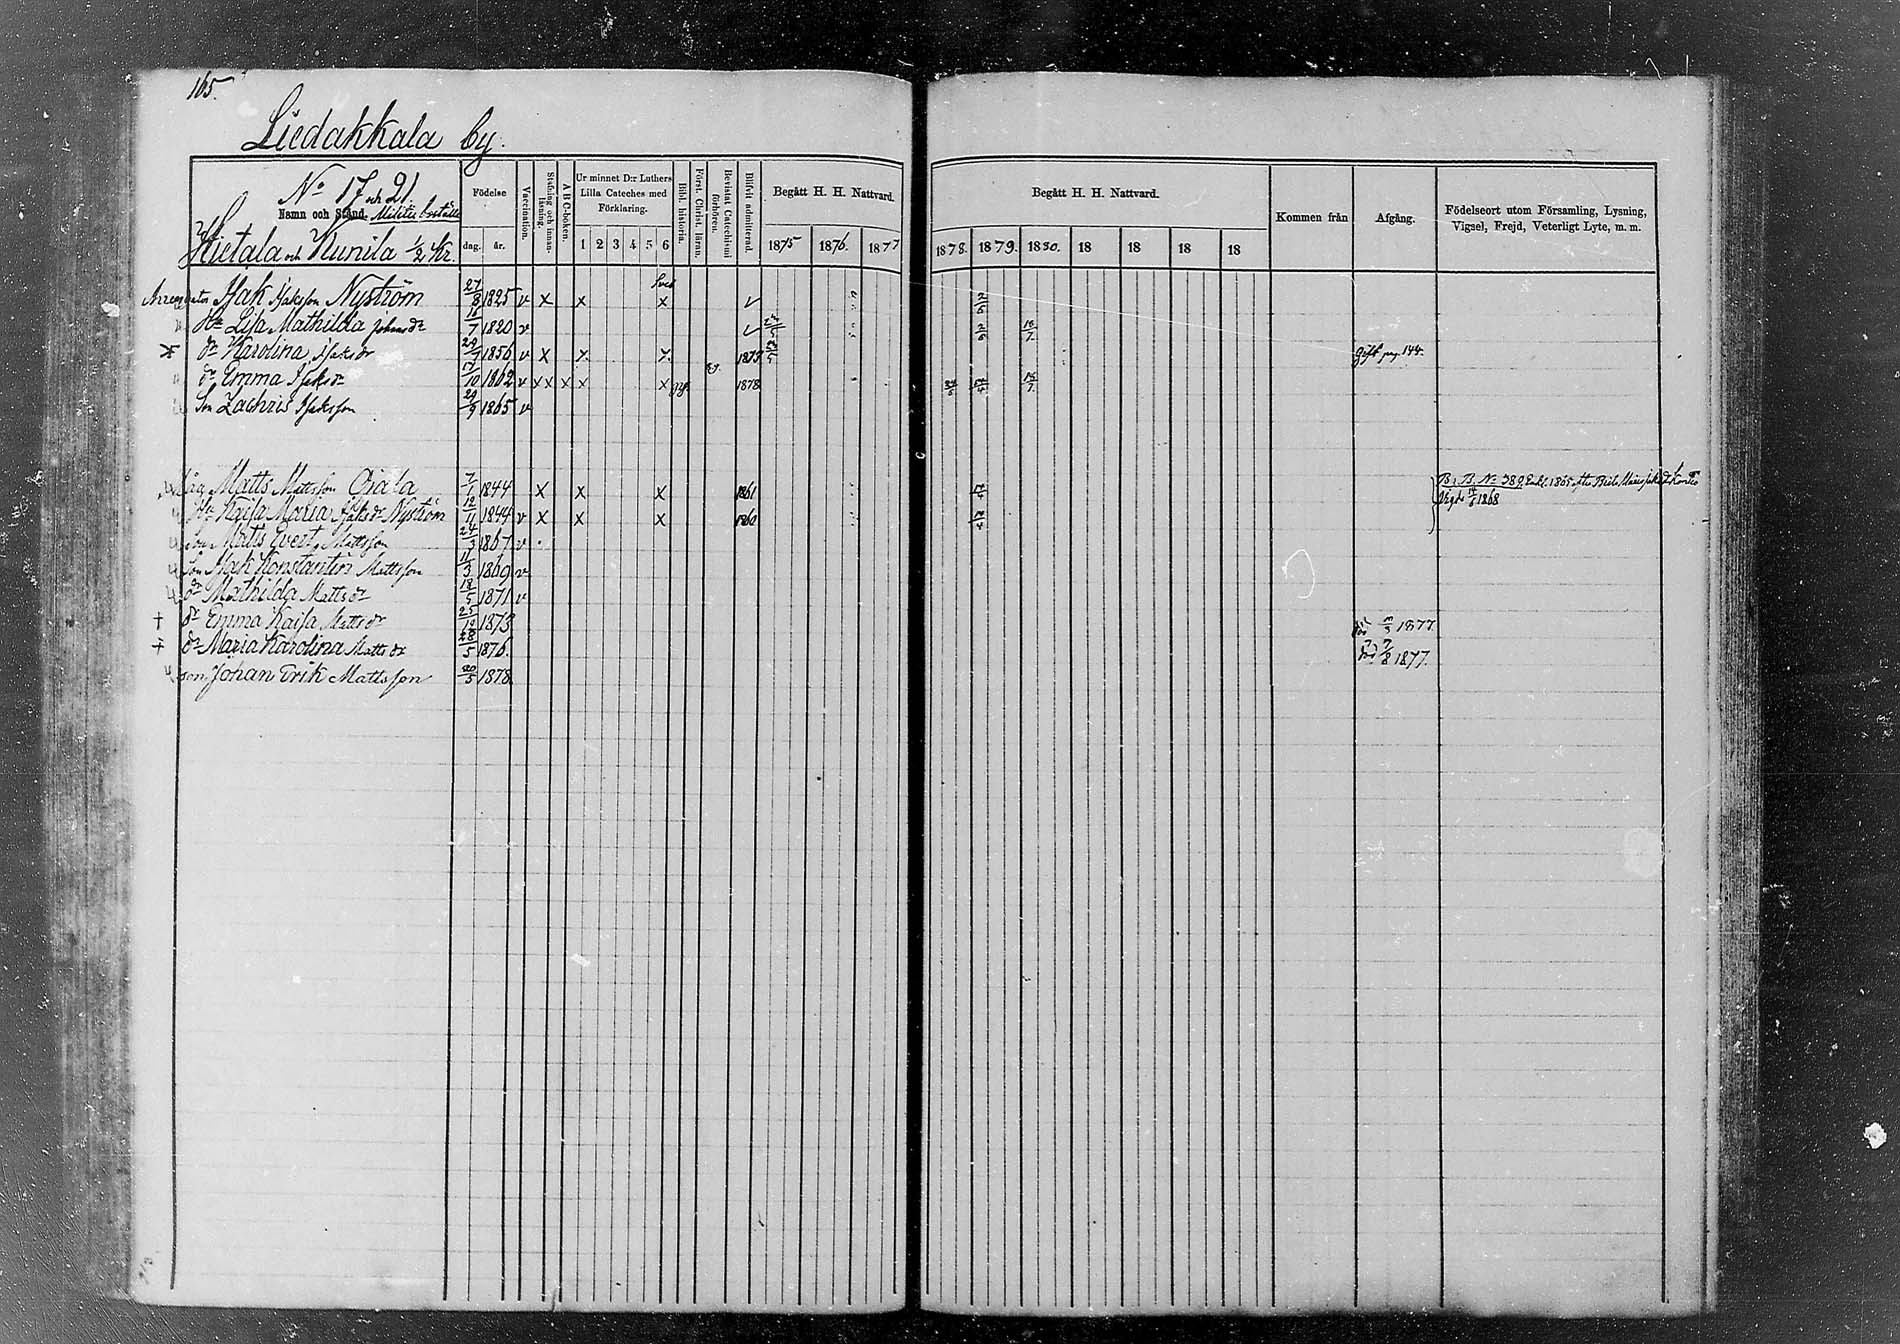 165.
Liedakkala by.
No 17 och 21.
Namn och Stånd. Militie boställe
Hietala och Kunila 1/2 Kr.
Födelse
dag. år.
Vaccination.
Stafning och innanläsning.
A B C-boken.
Ur minnet D:r Luthers Lilla Cateches med Förklaring.
1 2 3 4 5 6
Bibl. historia.
Först. Christ. läran.
Bevistat Catechismi förhören.
Blifvit admitterad.
Begått H. H. Nattvard.
1875 1876. 1877
Begått H. H. Nattvard.
1878. 1879. 1880. 18 18 18 18
Kommen från
Afgång.
Födelseort utom Församling, Lysning, Vigsel, Frejd, Veterligt Lyte, m. m.
Isak Isaksson Nyström 27/8 1825 v x x x v 2/6
Lisa Mathilda Johansdr 16/7 1820 v v 2/6 18/7
dr Karolina Isaksdr 1856 v x 1873 gift pag. 144.
dr Emma Isaksdr 17/10 1862 v x x x x x 1878
Son Zachris Isaksson 29/9 1865 v
Måg Matts Mattsson Ojala 7/1 1844 x x x 1861
Vigde 1868
Hu Kajsa Maria Isaksdr Nyström 12/11 1844 v x x x 1860
son Matts Evert Mattsson 24/3 1867 v
Son Isak Konstantin Mattsson 11/3 1869 v
dr Mathilda Mattsdr 18/5 1871 v
+ dr Emma Kajsa Mattsdr 25/12 1873 1877.
+ dr Maria Karolina Mattsdr 28/5 1876. 7/8 1877.
son Johan Erik Mattsson 20/5 1878